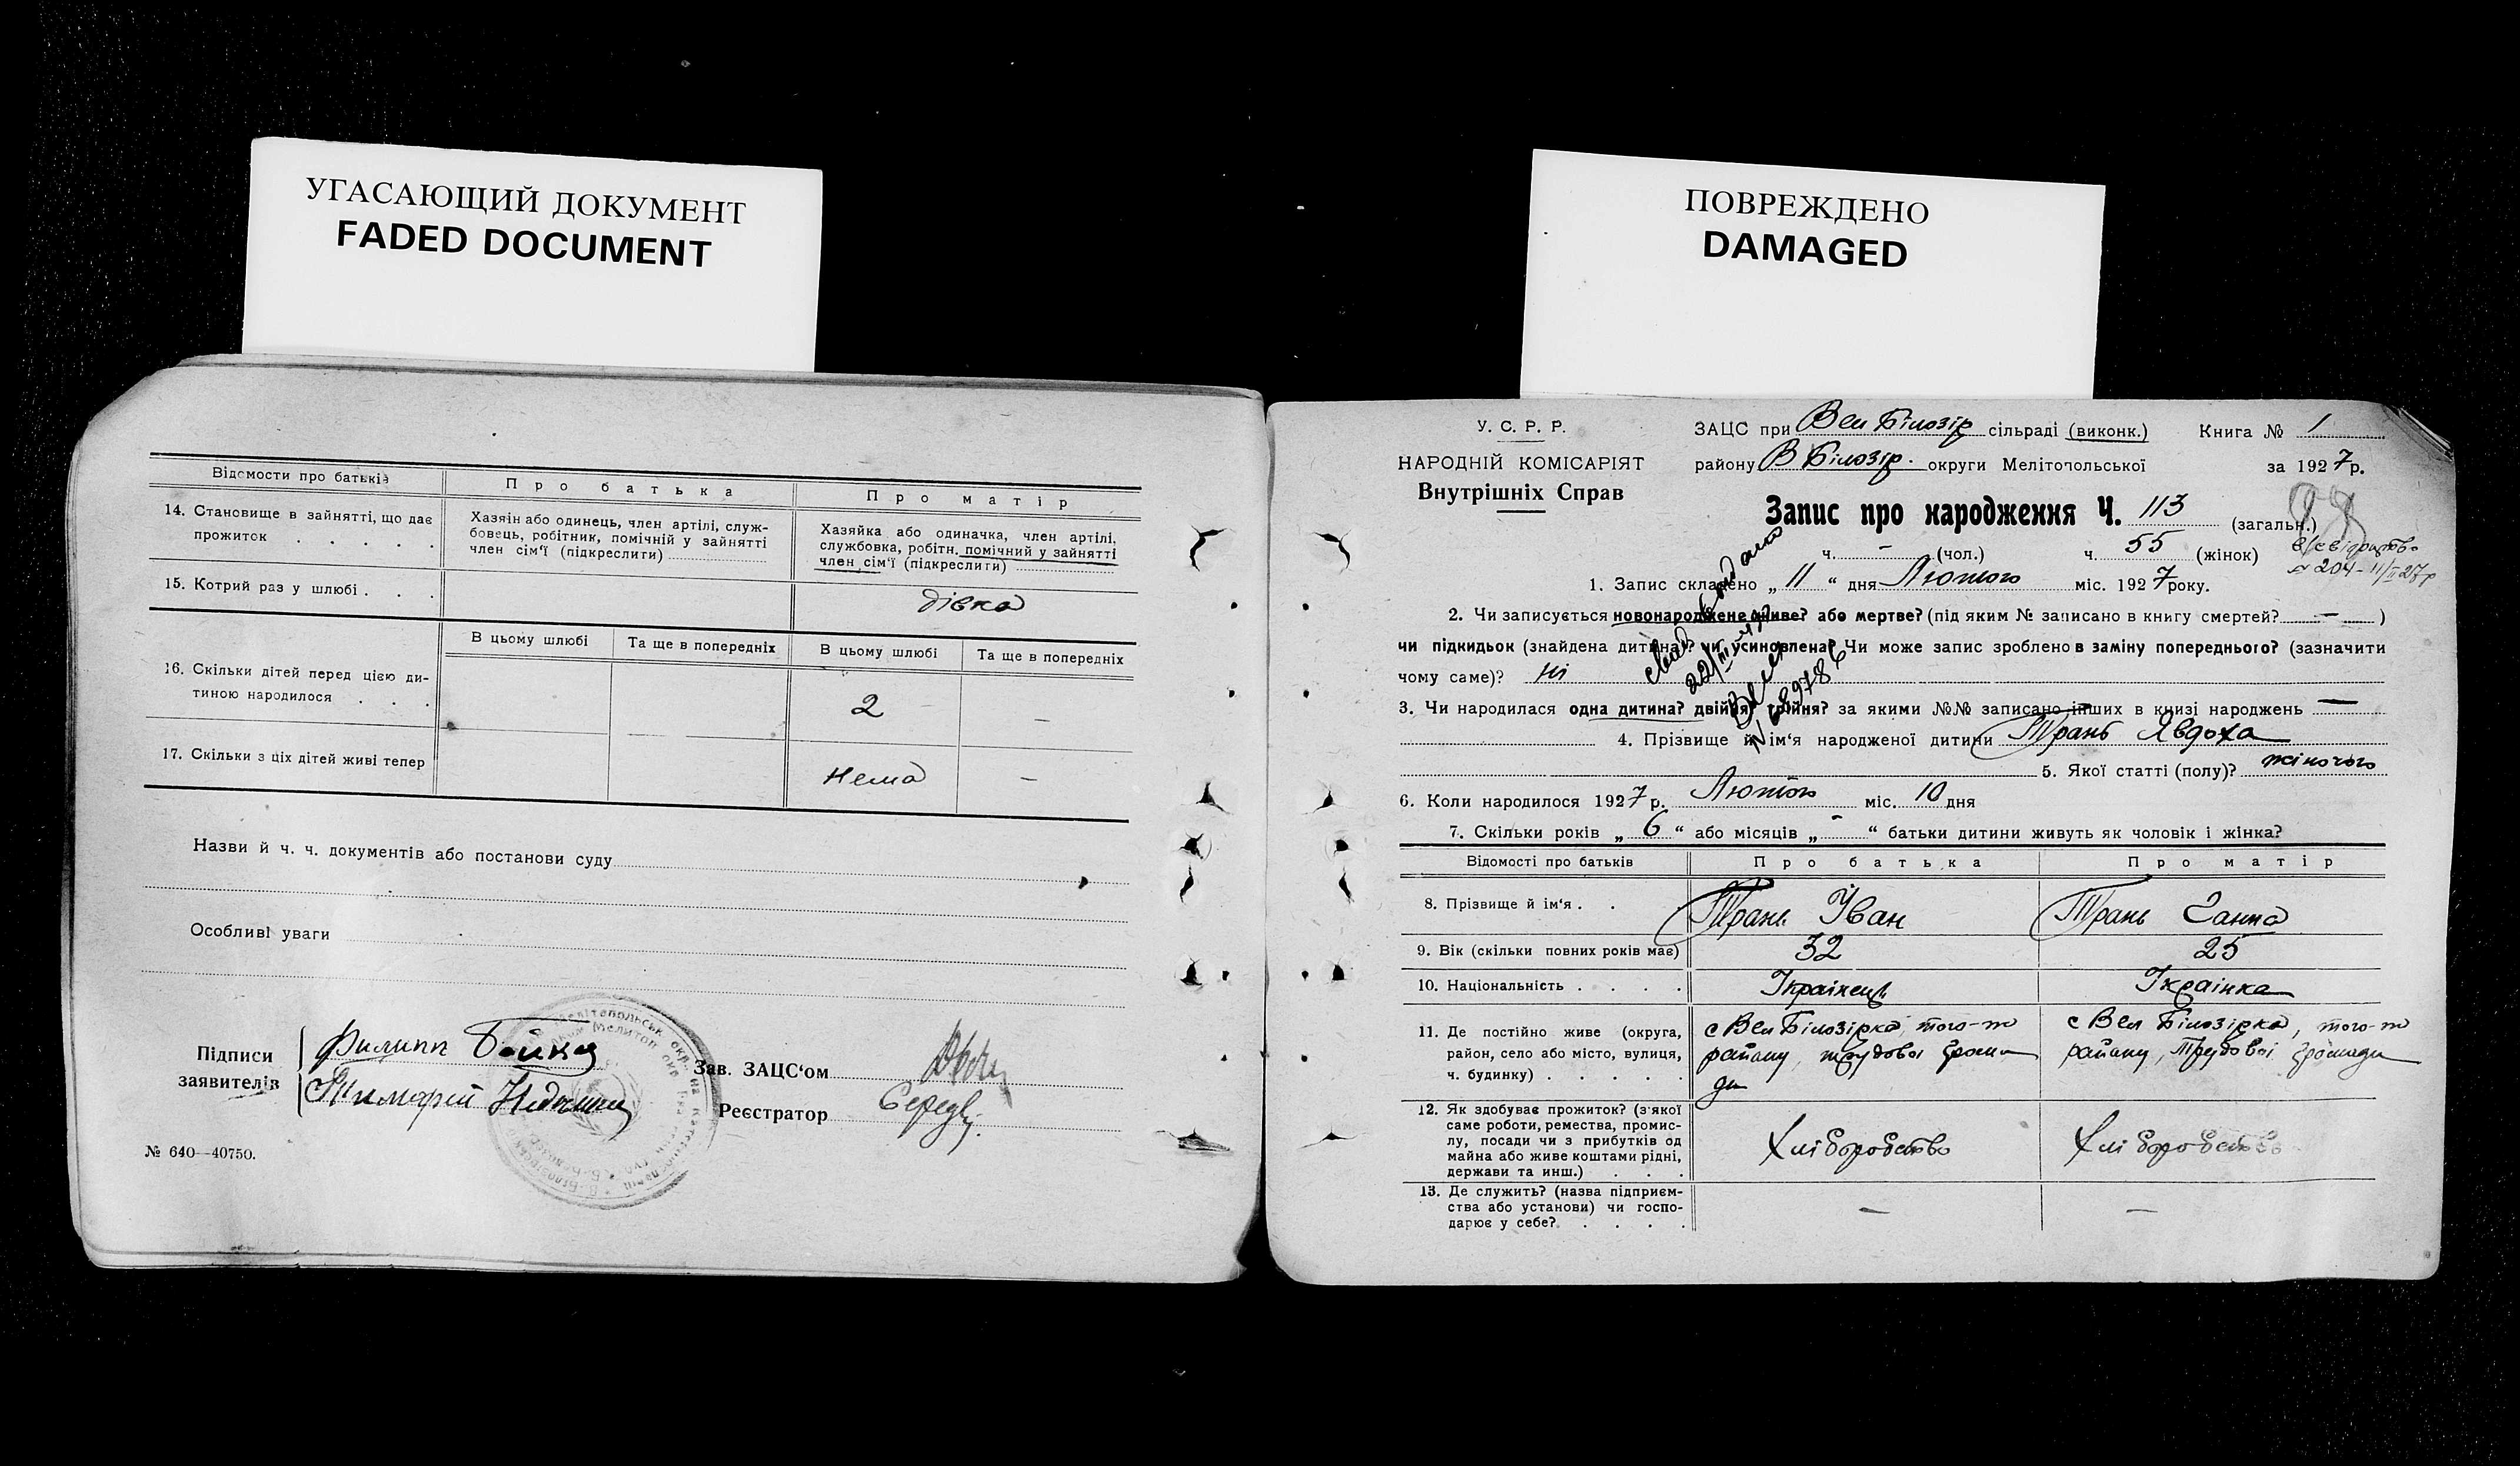 УГАСАЮЩИЙ ДОКУМЕНТ
FADED DOCUMENT
Відомости про батьків
Про батька
Про матір
14. Становище в зайнятті, що дає
прожиток . . . . .
Хазяін або одинець, член артілі, служ-
бовець, робітник, помічній у зайнятті
член сім'ї (підкреслити)
Хазяйка або одиначка, член артілі,
службовка, робітн. помічний у зайнятті
член сім'ї (підкреслити)
15. Котрий раз у шлюбі . . .
дівка
В цьому шлюбі
Та ще в попередніх
В цьому шлюбі
Та ще в попередніх
16. Скільки дітей перед цією ди-
тиною народилося . . .
2
–
17. Скільки з ціх дітей живі тепер
Нема
–
Назви й ч. ч. документів або постанови суду
Особливі уваги
Підписи
заявителів
Филипп Бойко
Тимофій
Зав. ЗАЦС'ом
Реєстратор
№ 640—40750.
ПОВРЕЖДЕНО
DAMAGED
У. С. Р. Р.
НАРОДНІЙ КОМІСАРІЯТ
Внутрішніх Справ
ЗАЦС при Вел Білозір сільраді (виконк.)
Книга № 1
району В Білозір. округи Мелітопольської
за 1927 р.
Запис про народження Ч. 113 (загальн.)
ч. - (чол.) ч. 55 (жінок)
№ 204 – 11/II 27р
1. Запис складено „11“ дня Лютого міс. 1927 року.
2. Чи записується новонароджене живе? або мертве? (під яким № записано в книгу смертей? — )
чи підкидьок (знайдена дитина? чи усиновлена? Чи може запис зроблено в заміну попереднього? (зазначити
чому саме)? Ні
3. Чи народилася одна дитина? двійня? трійня? за якими №№ записано інших в книзі народжень —
4. Прізвище й ім'я народженої дитини Трань Явдоха
5. Якої статті (полу)? жіночого
6. Коли народилося 1927 р. Лютого міс. 10 дня
7. Скільки років „6“ або місяців „-“ батьки дитини живуть як чоловік і жінка?
Відомості про батьків
Про батька
Про матір
8. Прізвище й ім'я . . .
Трань Іван
Трань Ганна
9. Вік (скільки повних років має)
32
25
10. Національність . . . .
Українець
Українка
11. Де постійно живе (округа,
район, село або місто, вулиця,
ч. будинку) . . . . .
с Вел Білозірка, того-ж
району, трудової грома
ди
с Вел Білозірка, того-ж
району, Трудової громади
12. Як здобуває прожиток? (з'якої
саме роботи, ремества, промис-
лу, посади чи з прибутків од
майна або живе коштами рідні,
держави та инш.) . . .
Хліборобство
Хліборобство
13. Де служить? (назва підприєм-
ства або установи) чи госпо-
дарює у себе? . . . .
—
—